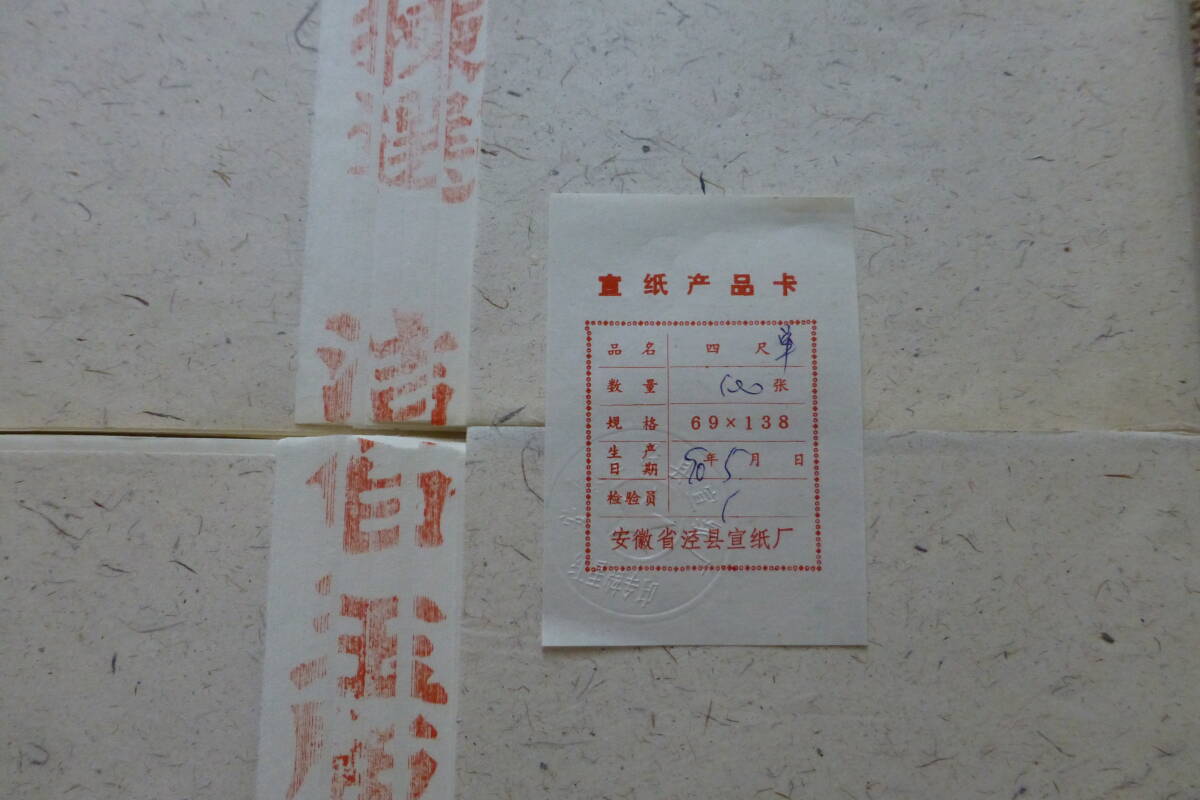 揀選
洁白玉
宣纸产品卡
品名 四尺单
数量 100张
规格 69×138
生产日期 90年5月 日
检验员
安徽省泾县宣纸厂